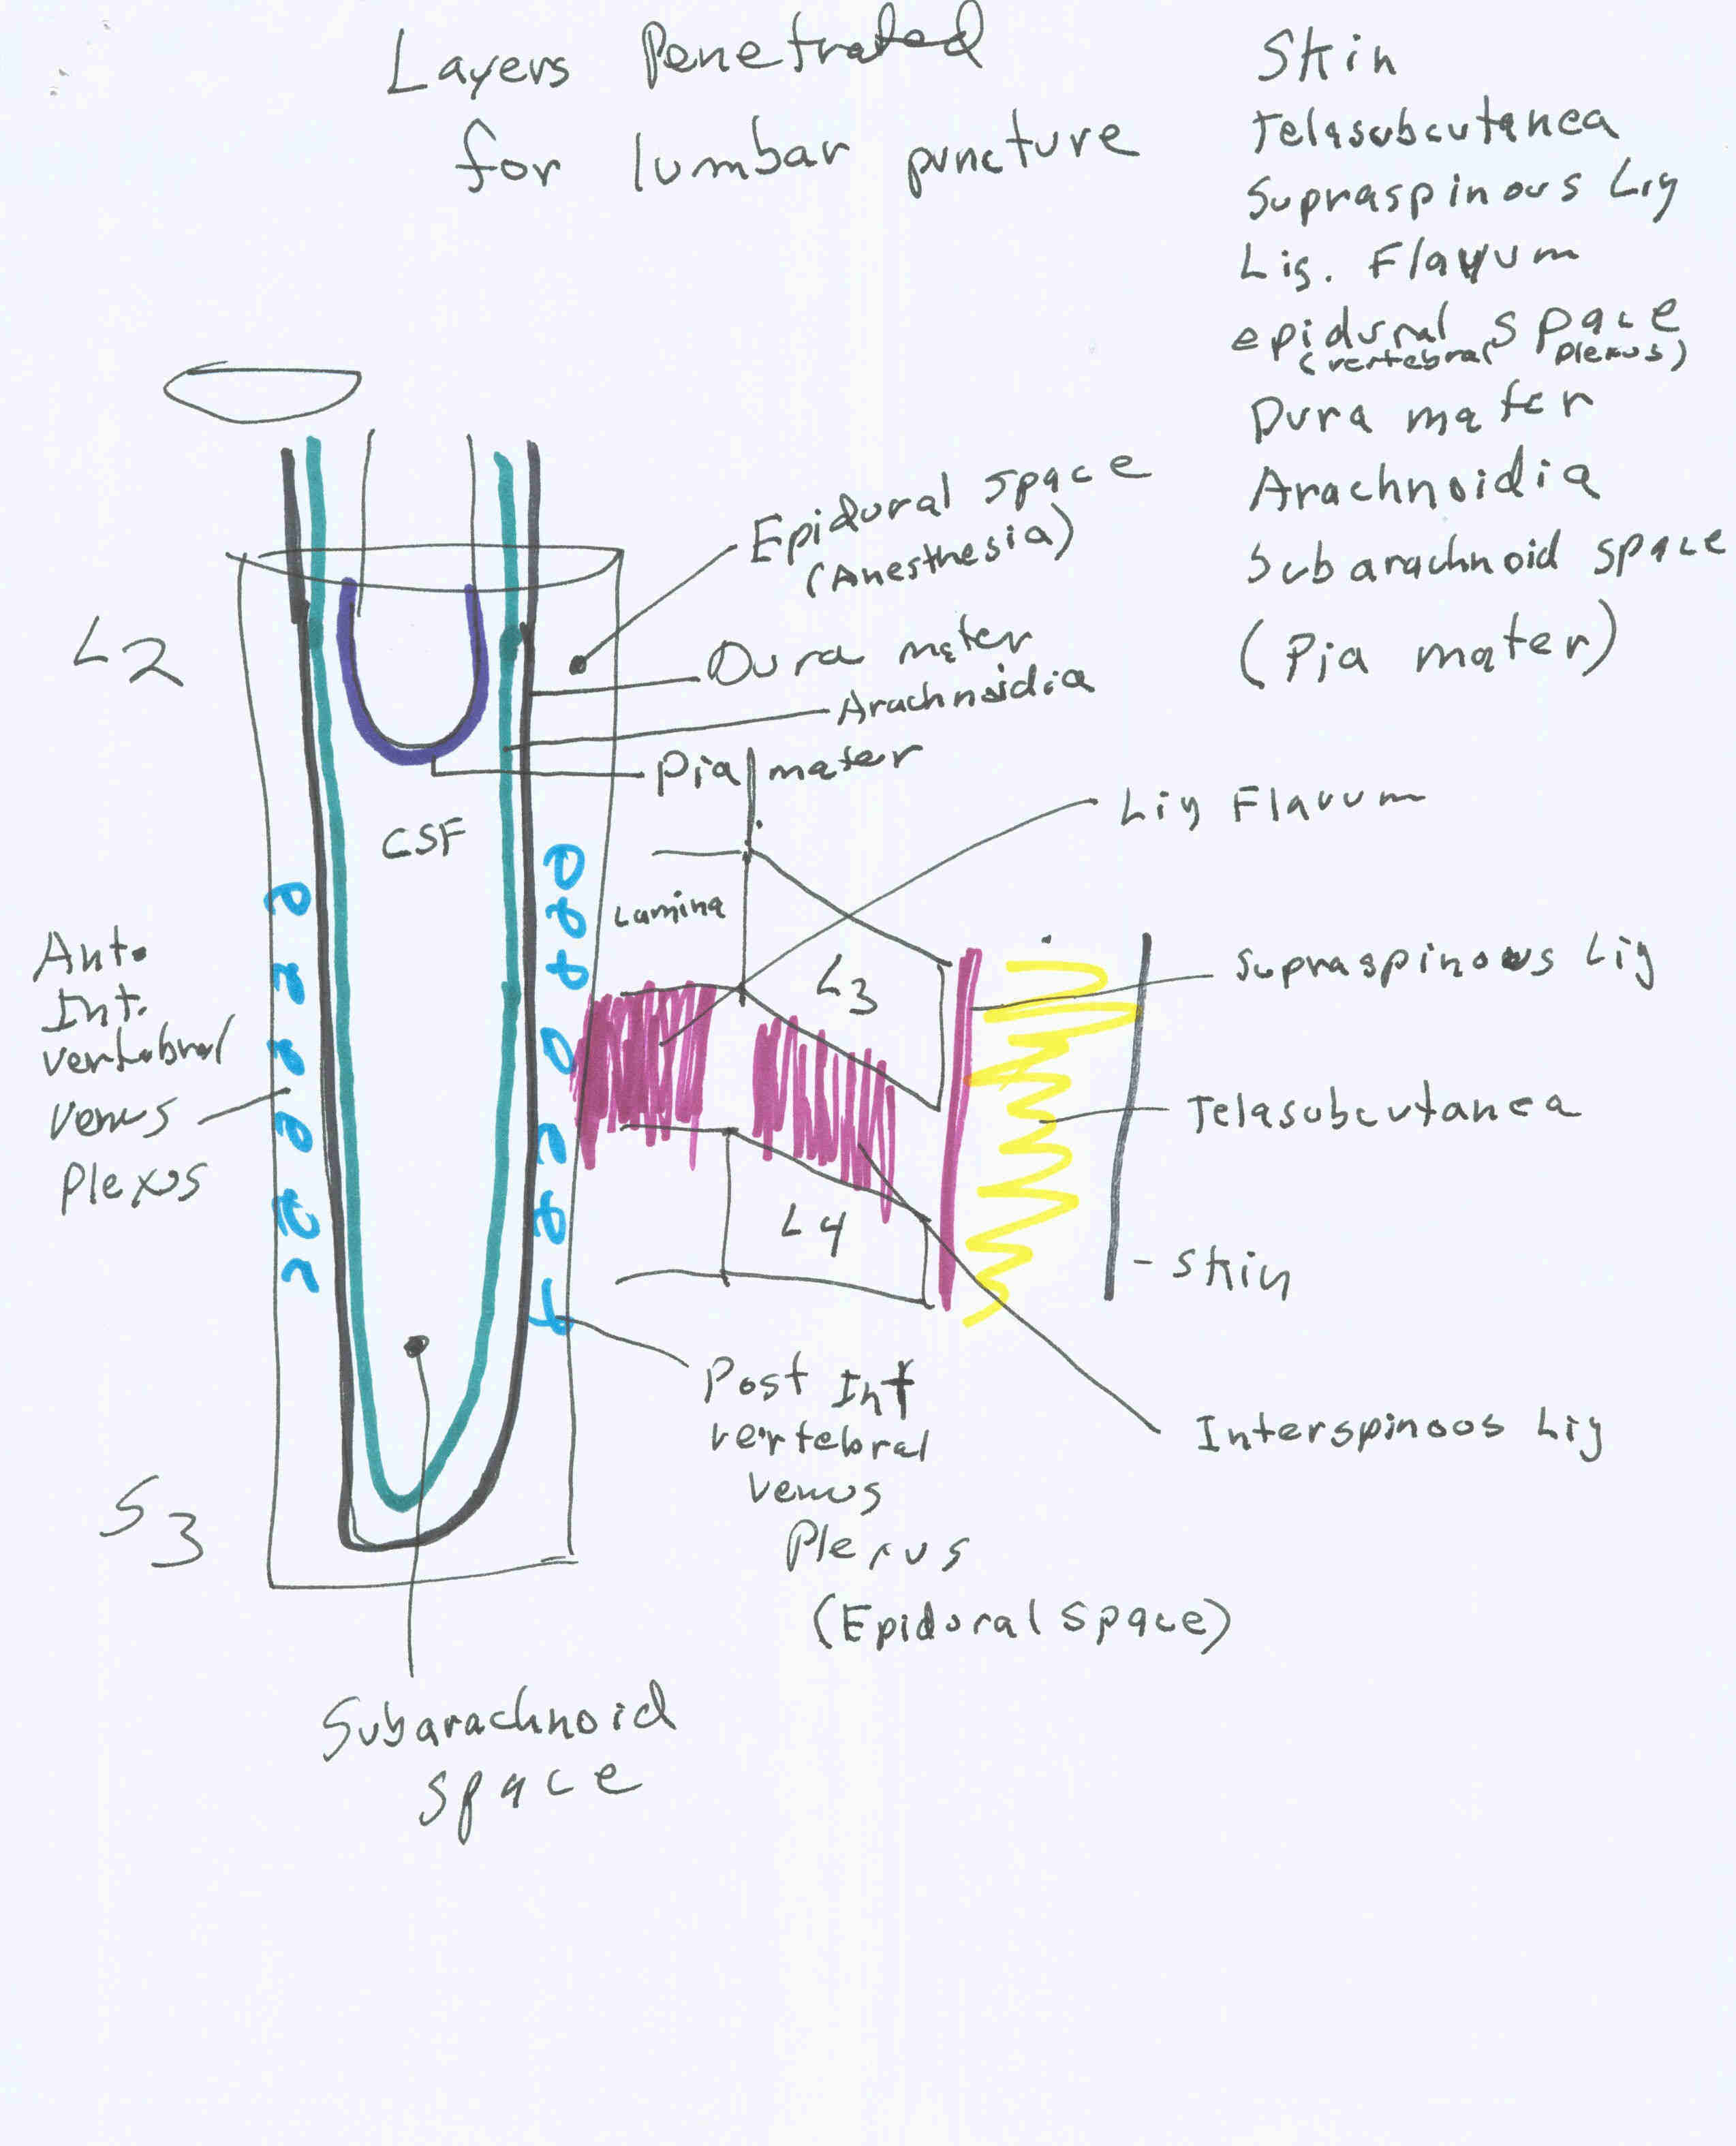 Layers Penetrated
for lumbar puncture
Skin
Telasubcutanea
Supraspinous Lig
Lig. Flavum
epidural space
(vertebral plexus)
Dura mater
Arachnoidia
Subarachnoid space
(Pia mater)
Epidural space
(Anesthesia)
L2
Dura mater
Arachnoidia
Pia mater
Lig Flavum
CSF
Lamina
L3
Supraspinous Lig
Ant.
Int.
vertebral
venus
Plexus
Telasubcutanea
L4
- Skin
Post Int
vertebral
venus
Plexus
(Epidural space)
Interspinous Lig
S3
Subarachnoid
space